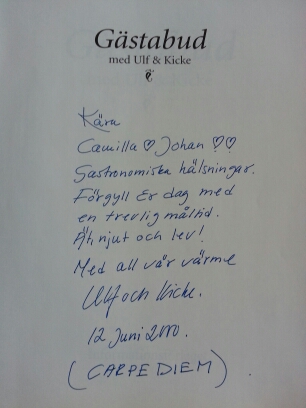 Gästabud
med Ulf & Kicke
Kära
Camilla ♡ Johan ♡♡
Gastronomiska hälsningar.
Förgyll Er dag med
en trevlig måltid.
Äh njut och lev!
Med all vår värme
Ulf och Kicke.
12 Juni 2000.
(CARPE DIEM)